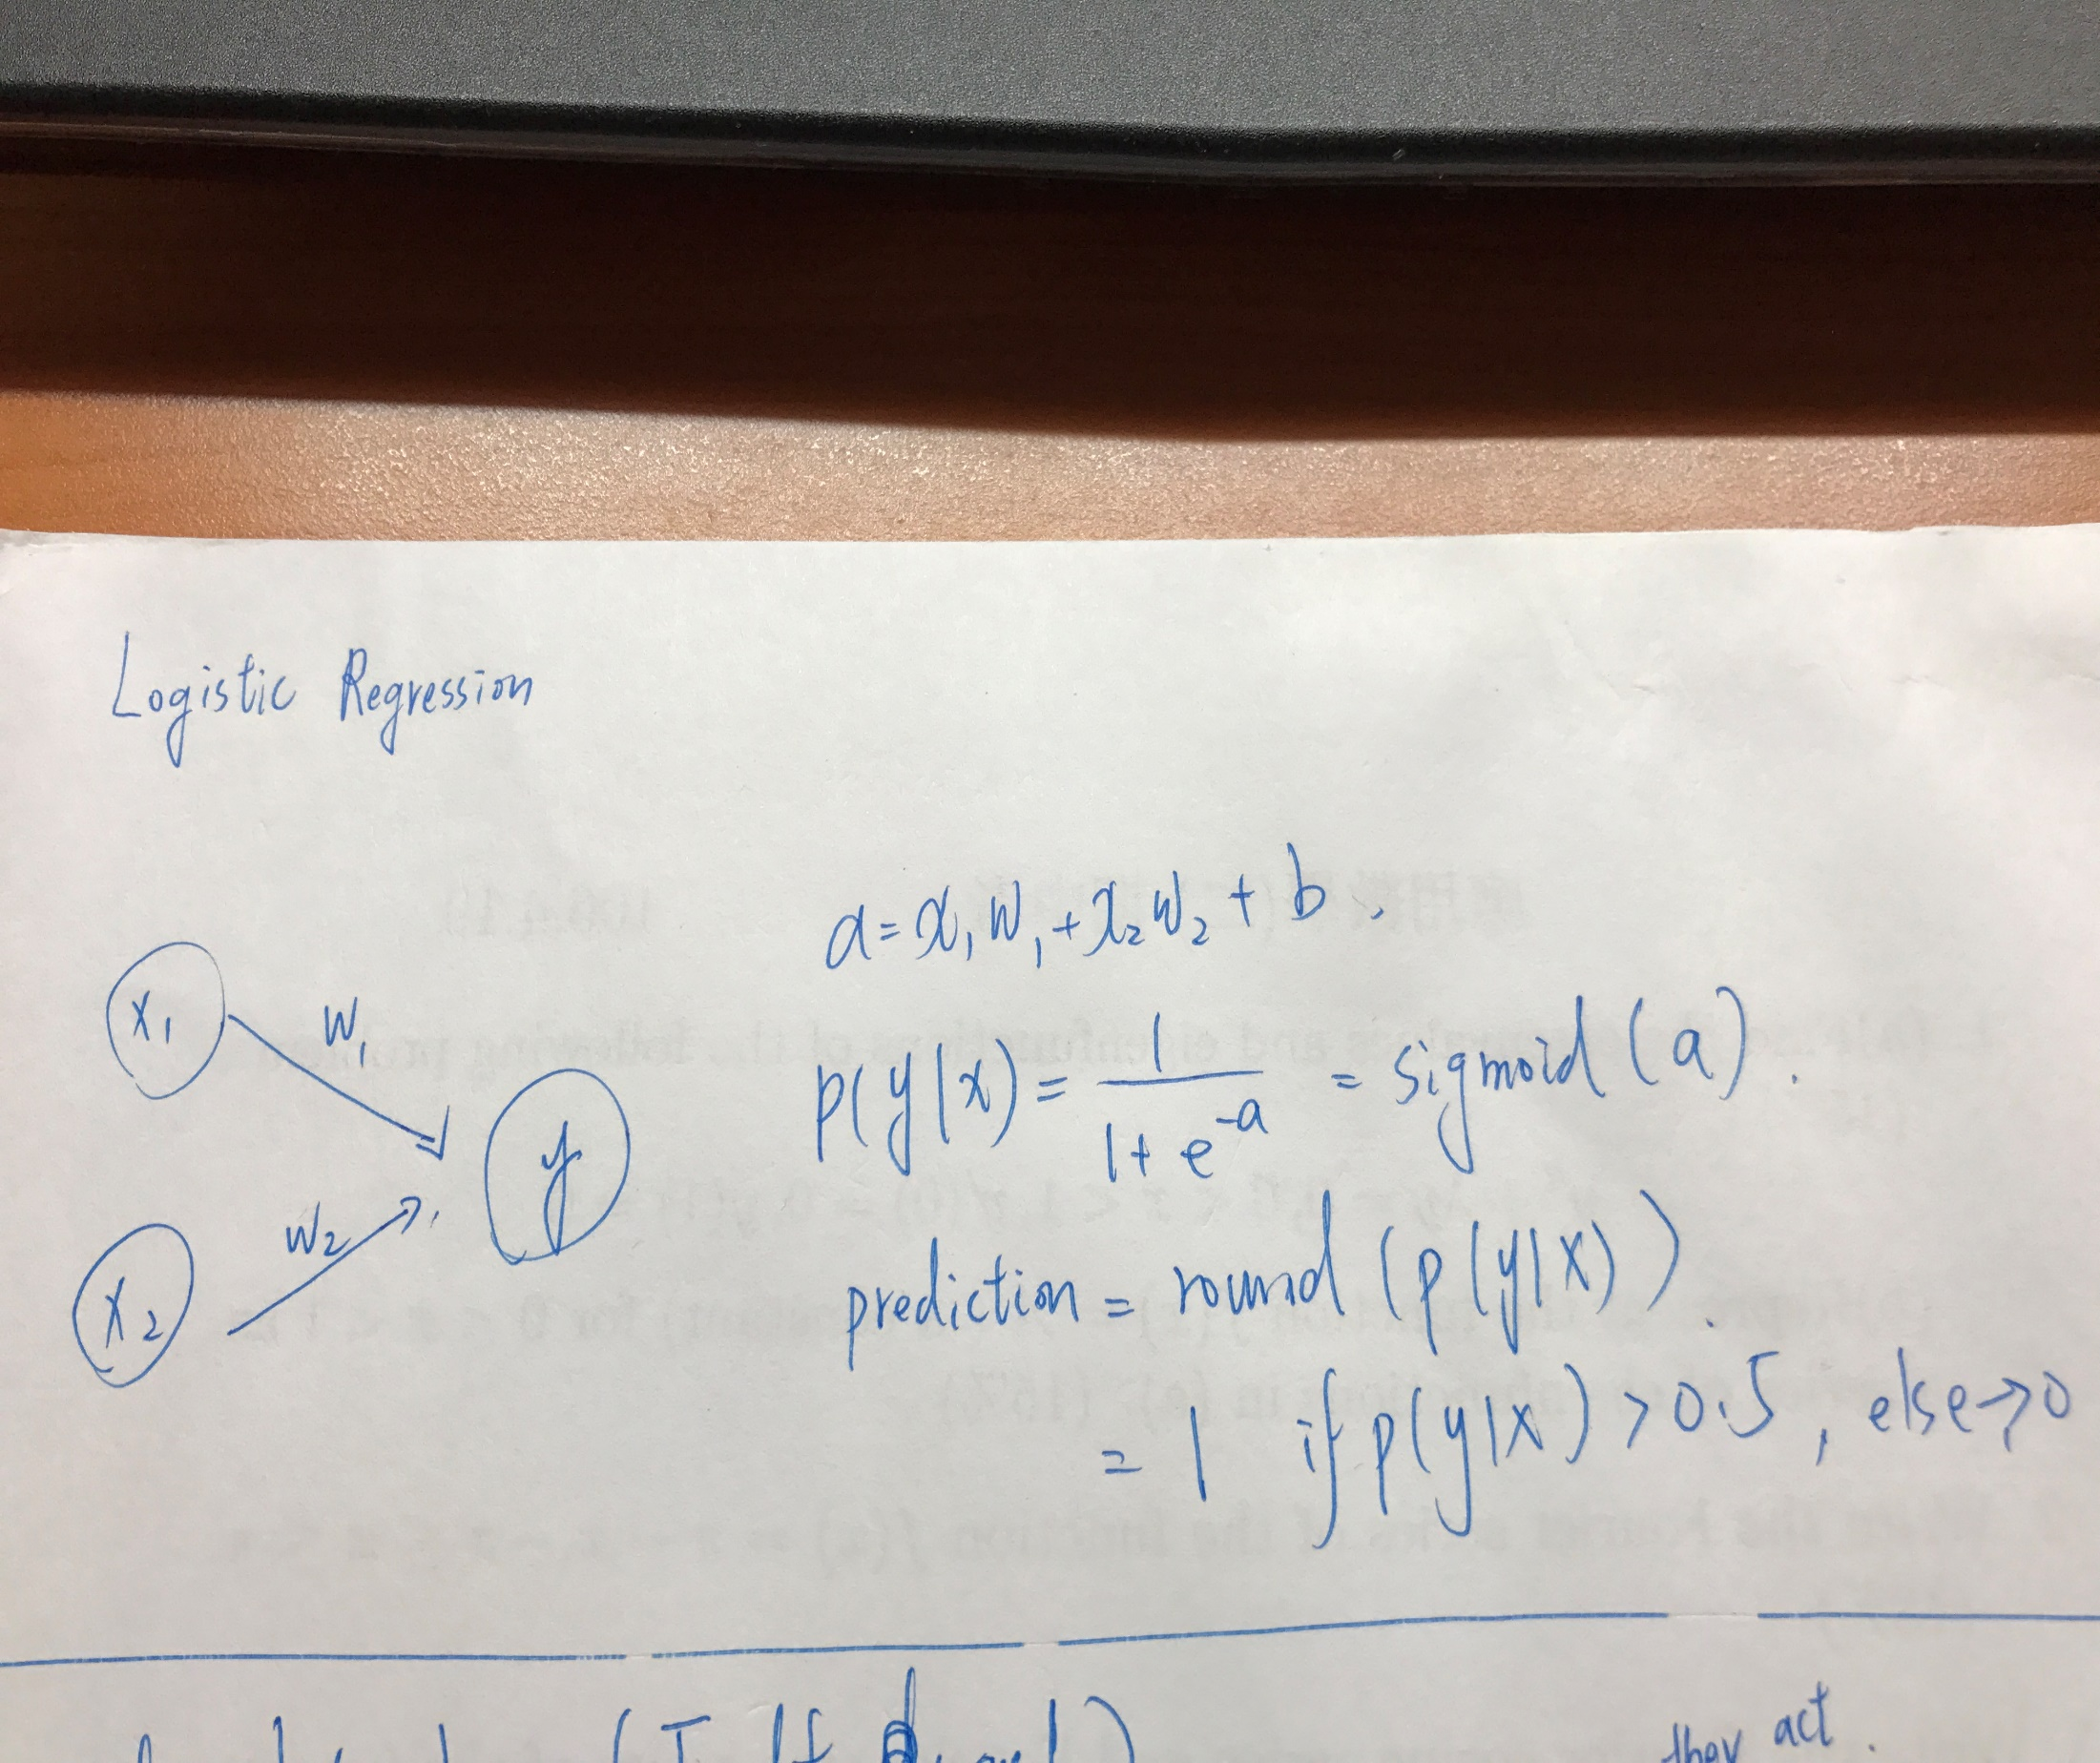 Logistic Regression
a = x₁w₁ + x₂w₂ + b,
x₁
w₁
p(y|x) = 1 / (1 + e^-a) = sigmoid(a).
y
w₂
x₂
prediction = round(p(y|x)).
= 1 if p(y|x) > 0.5, else → 0
they act.